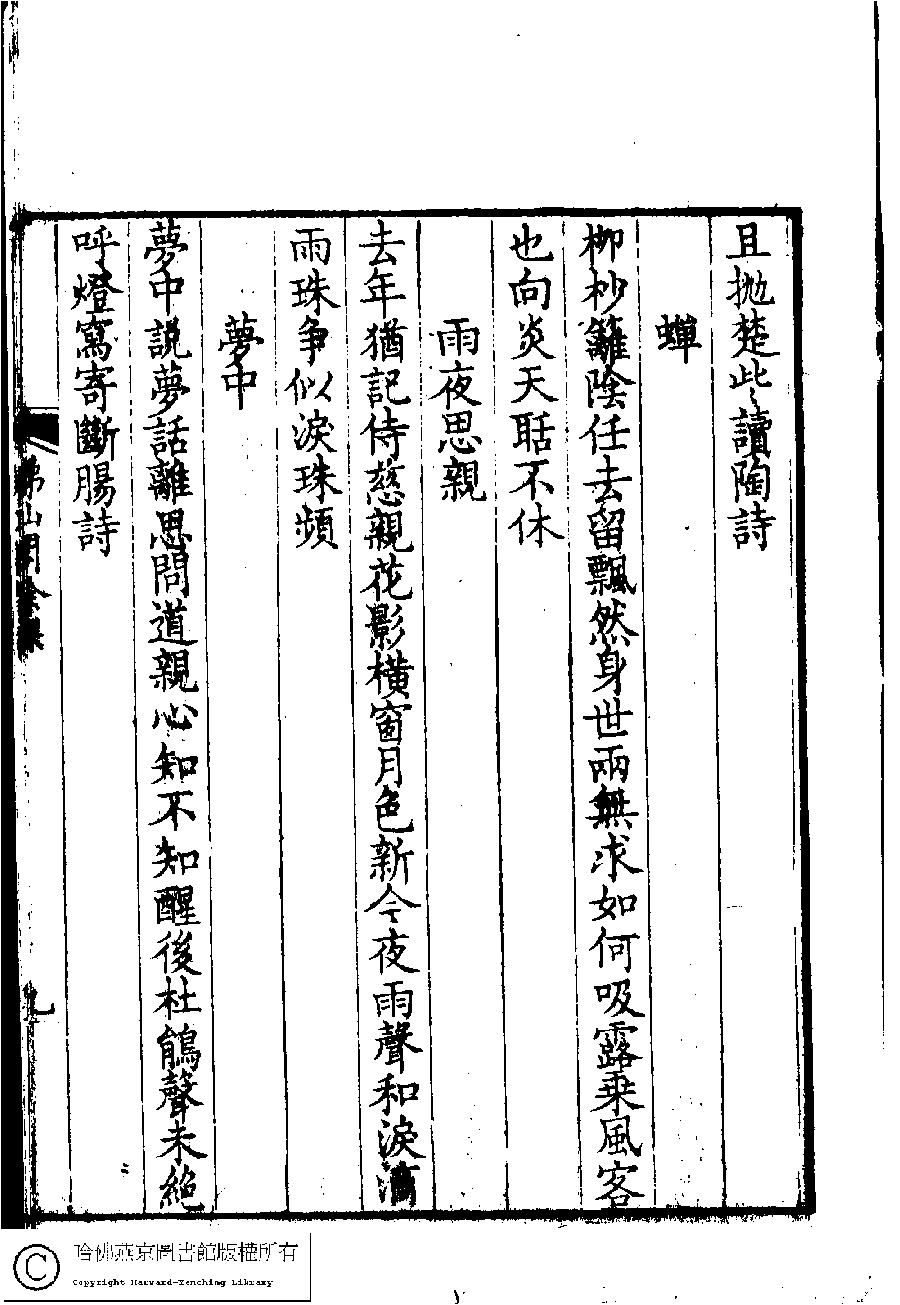 且拋楚些讀陶詩
蟬
柳杪籬陰任去留飄然身世兩無求如何吸露乘風客
也向炎天聒不休
雨夜思親
去年猶記侍慈親花影橫窗月色新今夜雨聲和淚滴
雨珠争似淚珠頻
夢中
夢中説夢話離思問道親心知不知醒後杜鵑聲未絶
呼燈寫寄斷腸詩
九
哈佛燕京圖書館版權所有
Copyright Harvard-Yenching Library